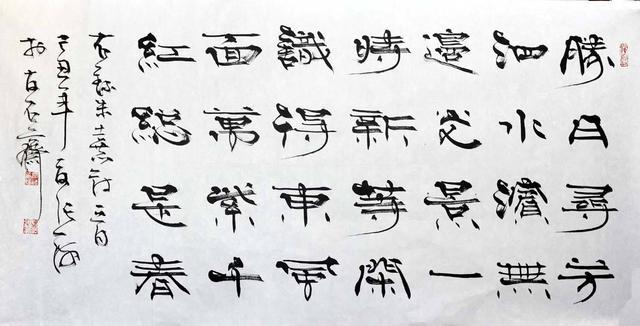 勝日尋芳
泗水濱無
邊光景一
時新等閑
識得東風
面萬紫千
紅總是春
右錄朱熹詩
丑年
石齋